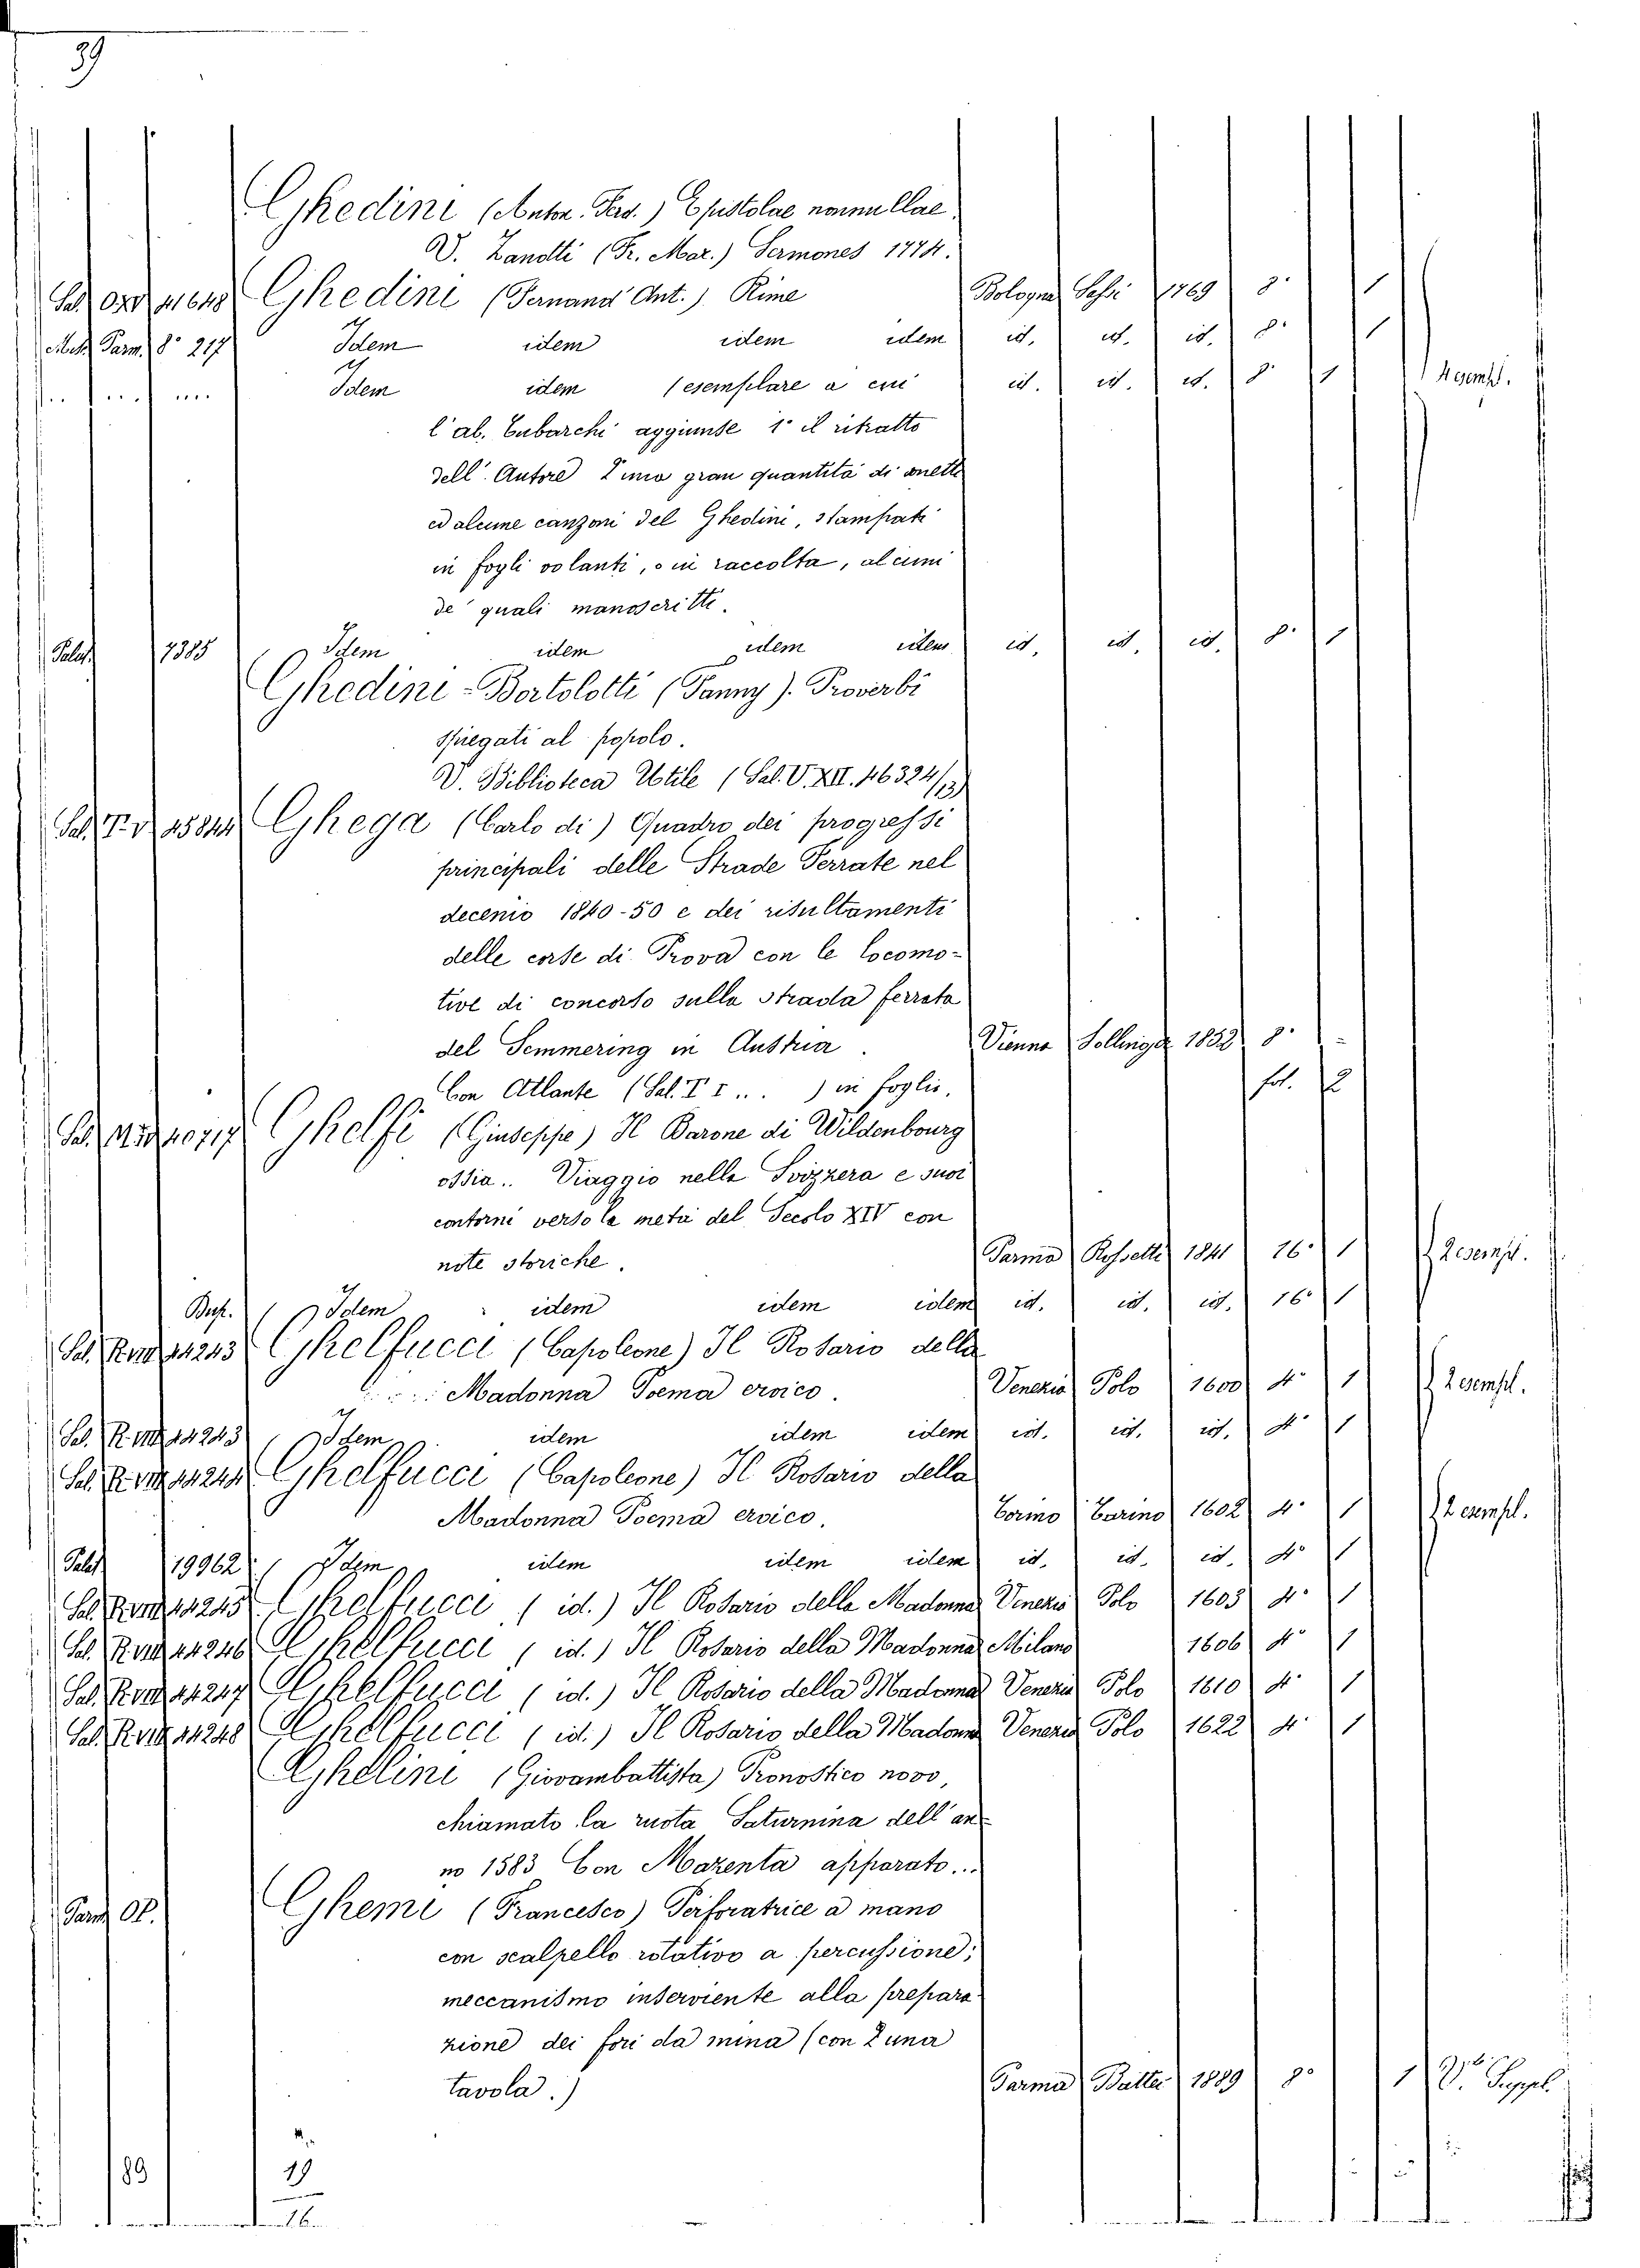 39
Ghedini (Anton. Ferd.) Epistolae nonnullae
V. Zanotti (Fr. Mar.) Sermones 1774.
Ghedini (Fernand. Ant.) Rime Bologna Sassi 1769 8° 1
Parm. 8° 217 Idem idem idem idem id. id. id. 8° 1
Idem idem (esemplare a cui id. id. id. 8° 1 4 esempl.
l'ab. Eubarchi aggiunse 1° il ritratto
dell'Autore gran quantità di
ed alcune canzoni del Ghedini, stampati
in fogli volanti, o in raccolta, alcuni
de' quali manoscritti.
Palat. 7385 Idem idem idem idem id. id. id. 8° 1
Ghedini-Bortolotti (Fanny). Proverbi
spiegati al popolo.
V. Biblioteca Utile (Sal. V. XII. 46324/13)
Ghega (Carlo di) Quadro dei progressi
principali delle Strade Ferrate nel
decenio 1840-50 e dei risultamenti
delle corse di Prova con le locomo-
tive di concorso sulla strada ferrata
del Semmering in Austria. Vienna Sollinger 8°
Con Atlante (Sal. T I ...) in foglio. fol. 2
Ghelfi (Giuseppe) Il Barone di Wildenbourg
ossia.. Viaggio nella Svizzera e suoi
contorni verso la metà del Secolo XIV con
note storiche. Parma Rossetti 1841 16° 1 2 esempl.
Idem idem idem idem id. id. id. 16° 1
Sal. 14243 Ghelfucci (Capoleone) Il Rosario della
Madonna Poema eroico. Venezia Polo 1600 4° 1 2 esempl.
Sal. 14243 Idem idem idem idem id. id. id. 4° 1
Sal. 14244 Ghelfucci (Capoleone) Il Rosario della
Madonna Poema eroico. Torino Tarino 1602 4° 1 2 esempl.
Palat. 19962 Idem idem idem idem id. id. id. 4° 1
Sal. 14245 Ghelfucci (id.) Il Rosario della Madonna Venezia Polo 1603 4° 1
Sal. 14246 Ghelfucci (id.) Il Rosario della Madonna Milano 1606 4° 1
Sal. 14247 Ghelfucci (id.) Il Rosario della Madonna Venezia Polo 1610 4° 1
Sal. 14248 Ghelfucci (id.) Il Rosario della Madonna Venezia Polo 1622 4° 1
Ghelini (Giovambattista) Pronostico novo,
chiamato la ruota Saturnina dell'an-
no 1583 Con Mazenta apparato...
Ghemi (Francesco) Perforatrice a mano
con scalpello rotativo a percussione;
meccanismo inserviente alla prepara-
zione dei fori da mina (con 1 una
tavola.) Parma Battei 1889 8° 1 V. Suppl.
89
19
16